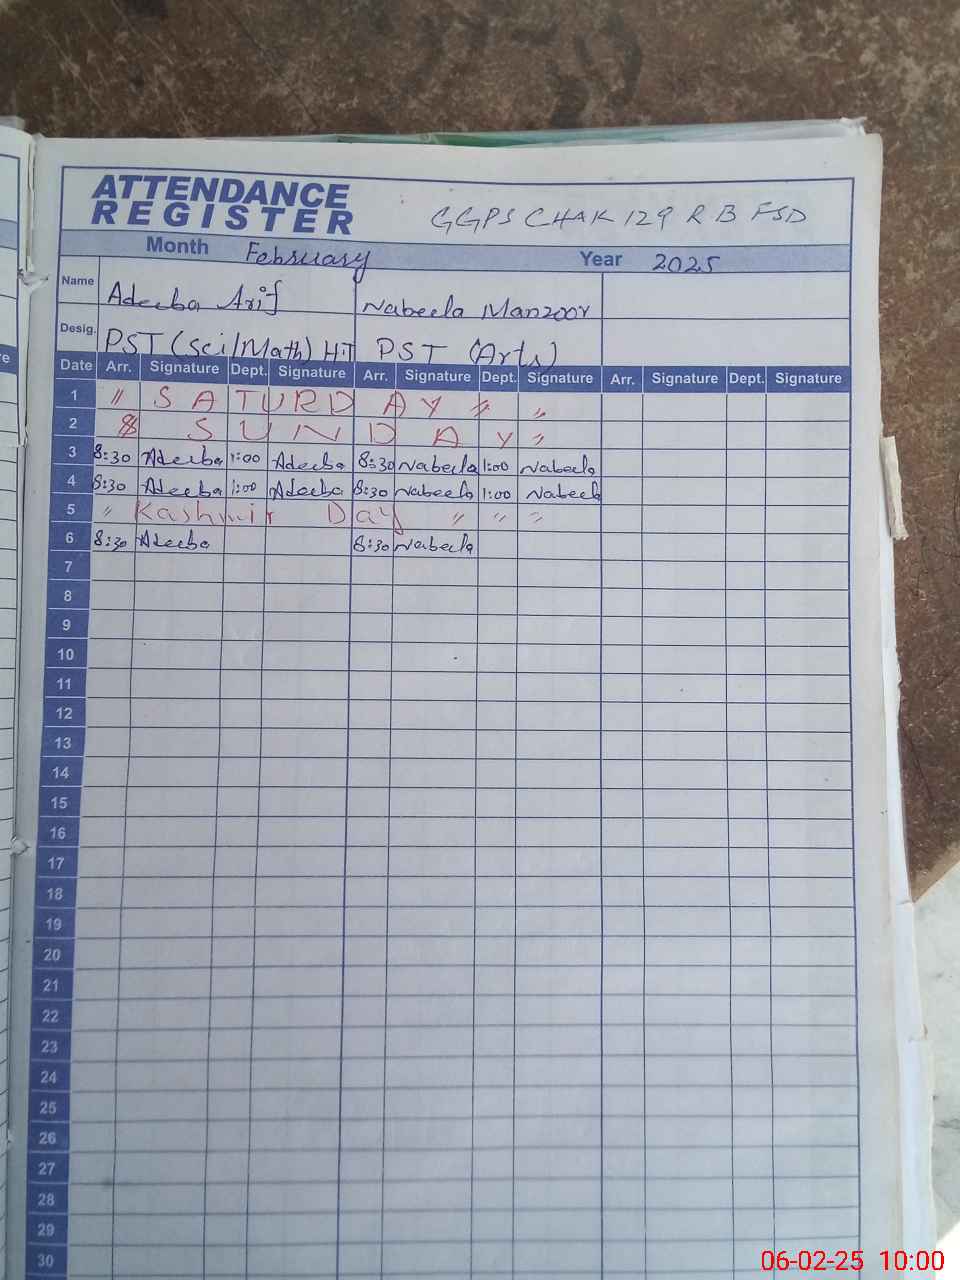 ATTENDANCE
REGISTER
GGPS CHAK 129 R B FSD
Month February Year 2025
Name Adeeba Arif Nabeela Manzoor
Desig. PST (Sci/Math) HT PST (Arts)
Date Arr. Signature Dept. Signature Arr. Signature Dept. Signature Arr. Signature Dept. Signature
1 " SATURDAY " "
2 SUNDAY "
3 8:30 Adeeba 1:00 Adeeba 8:30 Nabeela 1:00 Nabeela
4 8:30 Adeeba 1:00 Adeeba 8:30 Nabeela 1:00 Nabeela
5 " Kashmir Day " " "
6 8:30 Adeeba 8:30 Nabeela
7
8
9
10
11
12
13
14
15
16
17
18
19
20
21
22
23
24
25
26
27
28
29
30
06-02-25 10:00